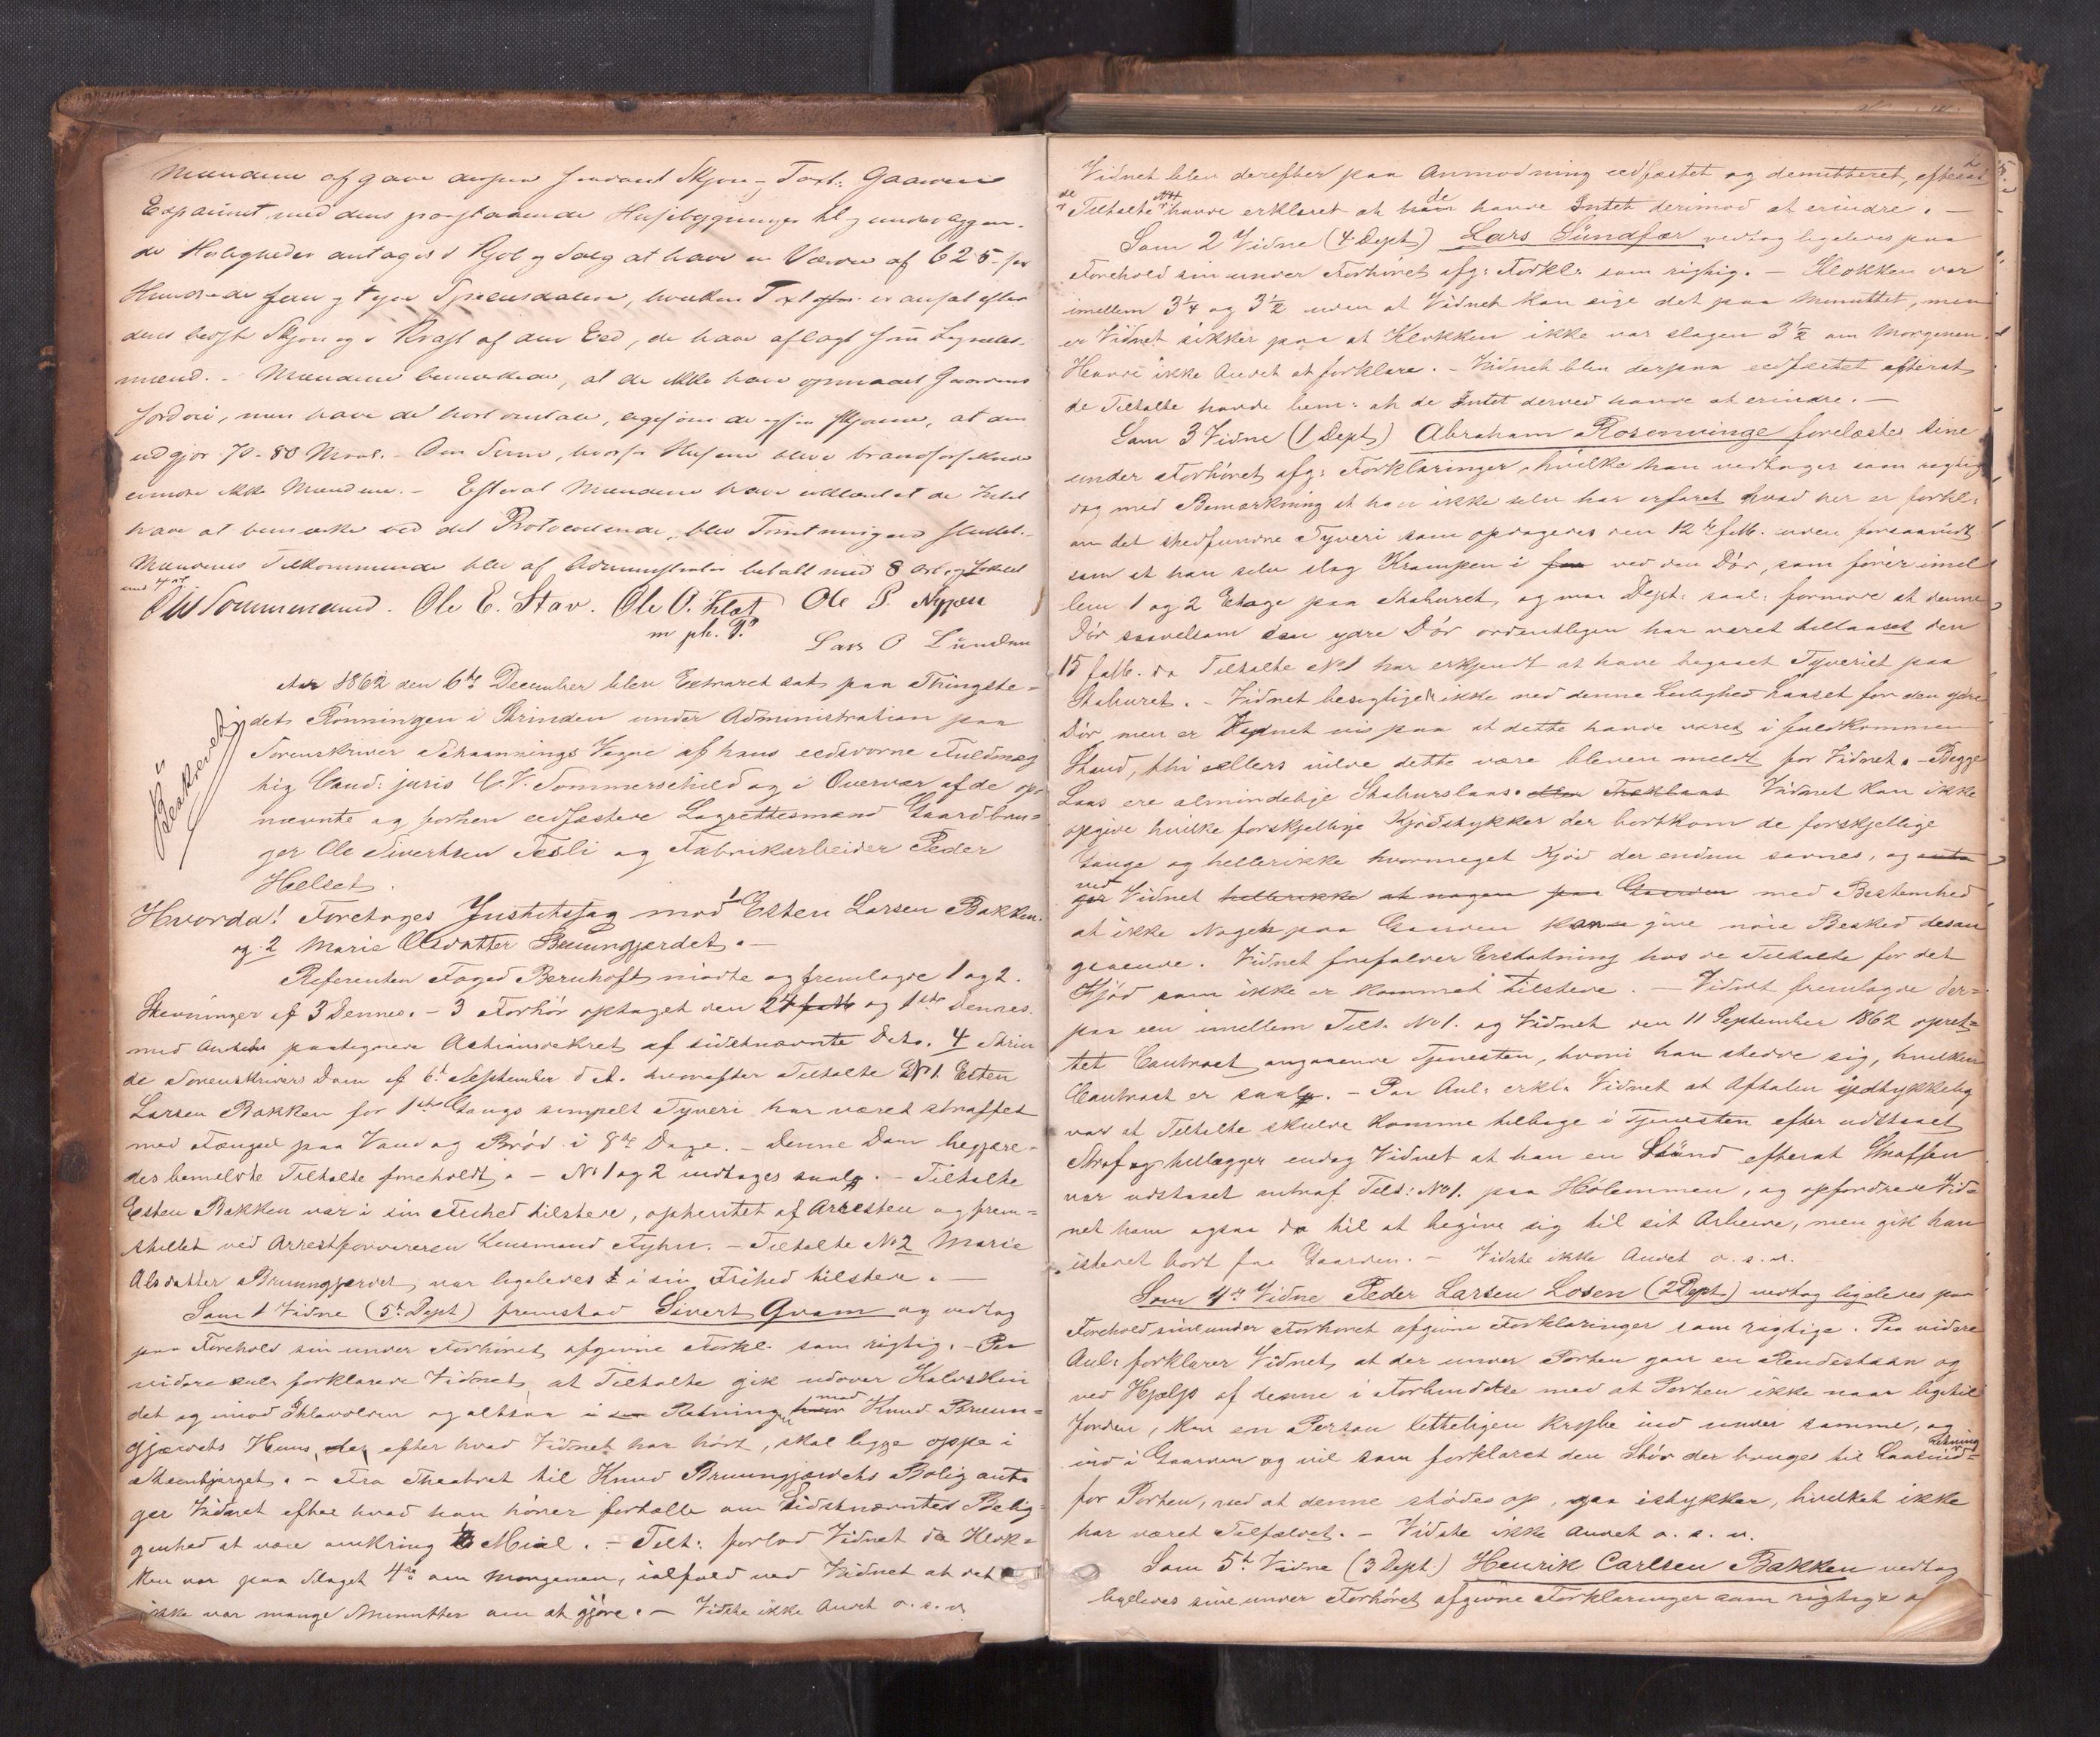 Mændene afgave derpaa saadant Skjøn og Taxt: Gaarden
Espaunet med dens paastaaende Husebygninger til og underliggen-
de Herligheder antages i Kjøb og Salg at have en Værdie af 625 - sex
Hundrede fem og tyve Speciesdaler, hvilken Taxt er ansat efter
deres bedste Skjøn og i Kraft af den Eed, de have aflagt som Lagrettes-
mænd. - Mændene bemærkede, at de ikke have opmaalt Gaardens
Jordvei, men have de hørt omtale, ligesom de ogsaa skjønne, at den
udgjør 70-80 Maal. - Den Sum, hvorfor Husene blive brandforsikrede
erindre ikke Mændene. - Efterat Mændene have erklæret at de Intet
have at bemærke ved det Protocollerede, blev Forretningen sluttet.
Mændenes Tilkommende blev af Administrator betalt med 8 Ort og Lokalet
med 4 Ort
Sommerschild. Ole E. Stav. Ole O. Klæt Ole P. Nypen
m. ph. P. Lars O Lunden
Aar 1862 den 6te December blev Extraret sat paa Thingste-
det Rønningen i Strinden under Administration paa
Sorenskriver Schaannings Vegne af hans eedsvorne Fuldmæg
tig Cand: juris C. V. Sommerschild og i Overvær af de op-
nævnte og forhen eedfæstede Lagrettesmænd Gaardbru-
ger Ole Sivertsen Tesli og Fabrikarbeider Peder
Hælset.
Beskrevet
Hvorda! Foretoges Justitssag mod 1 Esten Larsen Bakken
og 2 Marie Olsdatter Bruungjerdet. -
Referenten Foged Bernhoft mødte og fremlagde 1 og 2.
Stevninger af 3 Dennes. - 3 Forhør optaget den 24 f. M. og 1ste Dennes.
med Amtets paategnede Actionsdekret af sidstnævnte Dato. 4 Strin
de Sorenskrivers Dom af 6te September d. A. hvorefter Tiltalte No 1. Esten
Larsen Bakken for 1ste Gangs simpelt Tyveri har været straffet
med Fængsel paa Vand og Brød i 8te Dage. - Denne Dom begjære-
des bemeldte Tiltalte foreholdt. - No 1 og 2 indtages saal. - Tiltalte
Esten Bakken var i sin Frihed tilstede, ophentet af Arresten og frem-
stillet ved Arrestforvareren Lensmand Fyhn. - Tiltalte No 2 Marie
Olsdatter Bruungjerdet var ligeledes i sin Frihed tilstede. -
Som 1 Vidne (5te Dept) fremstod Sivert Qvam og vedtog
paa Forehold sin under Forhøret afgivne Forkl. som rigtig. - Paa
videre Anl. forklarede Vidnet, at Tiltalte gik udover Kalvskin
det og imod Ihlavolden og altsaa i Retningen mod Knud Bruun-
gjærdets Huus, der efter hvad Vidnet har hørt, skal ligge oppe i
Steenbjerget. - Fra Theatret til Knud Bruungjærdets Bolig anta
ger Vidnet efter hvad han hører fortælle om Sidstnævntes Belig-
genhed at være omkring Miil. - Tilt: forlod Vidnet da Klok-
ken var paa Slaget 4re om Morgenen, ialfald ved Vidnet at det
ikke var mange Minutter om at gjøre. - Vidste ikke Andet o. s. v.
Vidnet blev derefter paa Anmodning eedfæstet og demitteret, efterat
de Tiltalte havde erklæret at de havde Intet derimod at erindre. -
Som 2 Vidne (4 Dept) Lars Sundfær vedtog ligeledes paa
Forehold sin under Forhøret afg: Forkl: som rigtig. - Klokken var
imellem 3¼ og 3½ uden at Vidnet kan sige det paa Minuttet, men
er Vidnet sikker paa at Klokken ikke var slagen 3½ om Morgenen.
Havde ikke Andet at forklare. - Vidnet blev derpaa eedfæstet efterat
de Tiltalte havde bem: at de Intet derved havde at erindre. -
Som 3 Vidne (1 Dept) Abraham Rosenvinge forelæstes sine
under Forhøret afg: Forklaringer, hvilke han vedtager som rigtig
dog med Bemærkning at han ikke selv har erfaret hvad her er forkl:
om det stedfundne Tyveri som opdagedes den 12te f. M. uden forsaavidt
som at han selv slog Krampen i ved den Dør, som fører imel
lem 1 og 2 Etage paa Staburet, og maa Dept: saal: formode at denne
Dør saavelsom den ydre Dør ordentligen har været tillaaset den
15 f. M. da Tiltalte No 1 har erkjendt at have begaaet Tyveriet paa
Staburet. - Vidnet besigtigede ikke ved denne Leilighed Laaset for den ydre
Dør men er Vidnet vis paa at dette havde været i fuldkommen
Stand, thi ellers vilde dette være bleven meldt for Vidnet. - Begge
Laas ere almindelige Staburslaas Vidnet kan ikke
opgive hvilke forskjellige Kjødstykker der bortkom de forskjellige
Gange og hellerikke hvormeget Kjød der endnu savnes, og
ved Vidnet med Bestemthed
at ikke Nogen paa Gaarden kan give nøie Besked desan
gaaende. Vidnet frafalder Erstatning hos de Tiltalte for det
Kjød som ikke er kommet tilstede. - Vidnet fremlagde der-
paa een imellem Tilt. No 1. og Vidnet den 11 September 1862 opret-
tet Contract angaaende Tjenesten, hvori han stedde sig, hvilken
Contract er saal. - Paa Anl: erkl. Vidnet at Aftalen udtrykkelig
var at Tiltalte skulde komme tilbage i Tjenesten efter udstaaet
Straf og tillægger endog Vidnet at han en Stund efterat Straffen
var udstaaet antraf Tilt: No 1. paa Hølemmen, og opfordrede Vid-
net ham ogsaa da til at begive sig til sit Arbeide, men gik han
istedet bort fra Gaarden. - Vidste ikke Andet o. s. v.
Som 4de Vidne Peder Larsen Losen (2 Dept) vedtog ligeledes paa
Forehold sine under Forhøret afgivne Forklaringer som rigtige. Paa videre
Anl: forklarer Vidnet, at der under Porten gaar en Rendesteen og
ved Hjælp af denne i Forbindelse med at Porten ikke naar ligetil
Jorden, kan en Person letteligen krybe ind under samme, og
ind i Gaarden og vil som forklaret den Stør der bruges til Laasindretning
for Porten, ved at denne stødes op, gaa istykker, hvilket ikke
har været Tilfældet. - Vidste ikke Andet o. s. v.
Som 5te Vidne (3 Dept.) Henrik Carlsen Bakken vedtog
ligeledes sine under Forhøret afgivne Forklaringer som rigtige